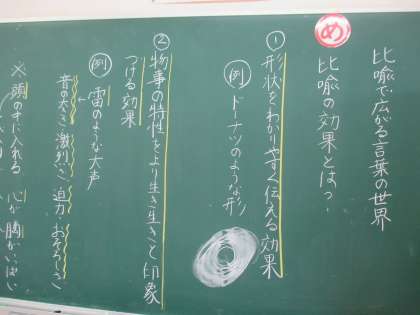 比喩で広がる言葉の世界
め 比喩の効果とは？
① 形状をわかりやすく伝える効果
例 ドーナツのような形
② 物事の特性をより生き生きと印象
つける効果
例 雷のような大声
音の大きさ 激しさ 迫力 おそろしさ
※頭の中に入れる 心が 胸がいっぱい